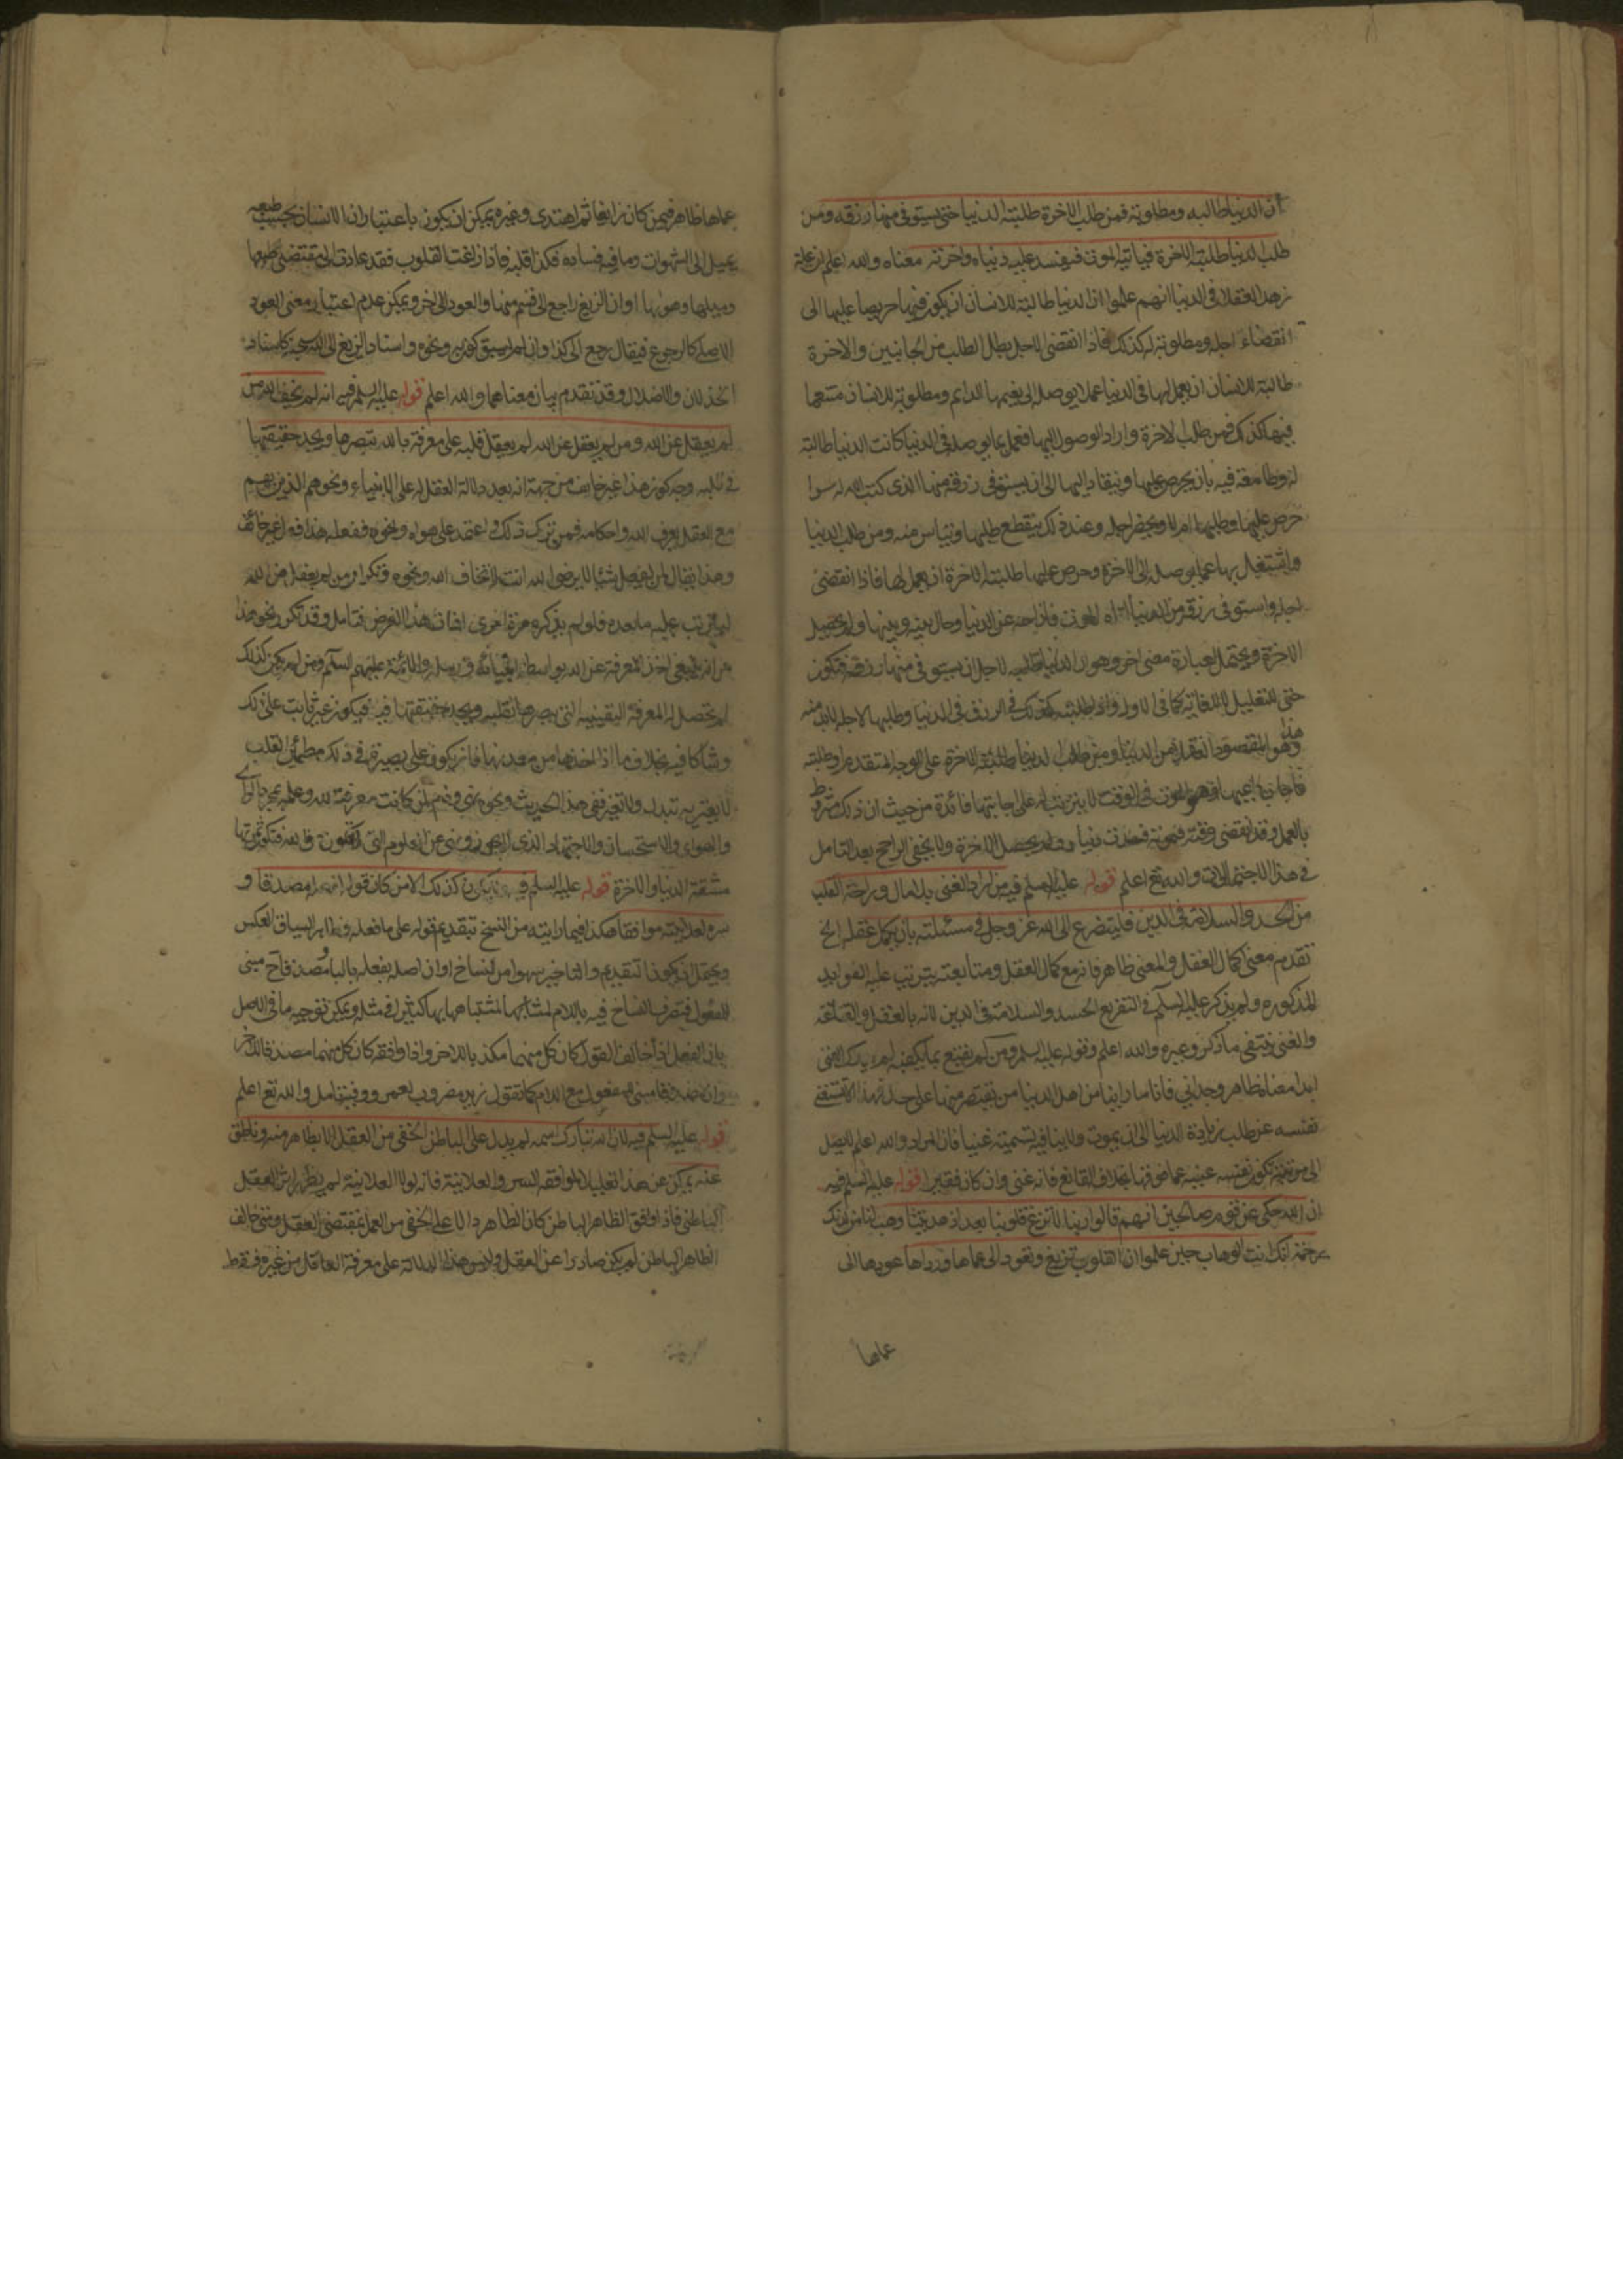 ان الدنيا طالبه ومطلوبة فمن طلب الاخرة طلبته الدنيا حتى يستوفى منها رزقه ومن
طلب الدنيا طلبته الاخرة فياتيه الموت فيفسد عليه دنياه واخرته معناه والله اعلم ان علة
زهد العقلاء فى الدنيا انهم علموا ان الدنيا طالبة للانسان ان يكون فيها حريصا عليها الى
انقضاء اجله ومطلوبة له كذلك فاذا انقضى الاجل بطل الطلب من الجانبين والاخرة
طالبة للانسان ان يعمل لها فى الدنيا عملا يوصله الى نعيمها الدائم ومطلوبة للانسان متنعما
فيها كذلك فمن طلب الاخرة واراد الوصول اليها فعمل بما يوصله فى الدنيا كانت الدنيا طالبة
له وطامعة فيه بان يحرص عليها وينقاد اليها الى ان يستوفى رزقه منها الذى كتب الله له سوا
حرص عليها وطلبها ام لا ويحضر اجله وعند ذلك ينقطع طلبها وتياس منه ومن طلب الدنيا
واشتغل بها عما يوصله الى الاخرة وحرص عليها طلبته الاخرة ان يعمل لها فاذا انقضى
اجله واستوفى رزقه من الدنيا اتاه الموت فازاحه عن الدنيا وحال بينه وبينها ولم يحصل
الاخرة ويحتمل العبارة معنى اخر وهو ان الدنيا طالبه لاجل ان يستوفى منها رزقه فتكون
حتى للتعليل لا للغاية كما فى الاول فى الرزق فى الدنيا وطلبها لاجله لابد منه
وهو المقصود هنا للعقلاء من الدنيا ومن طلب الدنيا طلبته الاخرة على الوجه المتقدم وطلبته
الموت فى الوقت لا يترتب له على جانبها فائدة من حيث ان ذلك مشروط
بالعمل وقد انقضى وقته بموته فسدت دنياه ولم يحصل الاخرة ولا يخفى الراجح بعد التامل
فى هذا الاحتمالات والله تع اعلم قوله عليه السلم فيه من اراد الغنى بلا مال وراحة القلب
من الحسد والسلامة فى الدين فليتضرع الى الله عز وجل فى مسئلته بان يكمل عقله الخ
تقدم معنى كمال العقل والمعنى ظاهر فانه مع كمال العقل ومتابعته يترتب عليه الفوايد
المذكوره ولم يذكر عليه السلم فى التفريع الحسد والسلامة فى الدين لانه بالعقل والقناعة
والغنى ينتفى ما ذكر وغيره والله اعلم وقوله عليه السلم ومن لم يقنع بما يكفيه لم يدرك الغنى
ابدا معناه ظاهر وجدانى فانا ما راينا من اهل الدنيا من يقتصر منها على حد
نفسه عن طلب زيادة الدنيا الى ان يموت ولا ينافيه تسميته غنيا فان المراد والله اعلم لا يصل
الى مرتبة تكون نفسه غنيه عما فوقها بخلاف القانع فانه غنى وان كان فقيرا قوله عليه السلم فيه
ان الله حكى عن قوم صالحين انهم قالوا ربنا لا تزغ قلوبنا بعد اذ هديتنا وهب لنا من لدنك
رحمة انك انت الوهاب حين علموا ان القلوب تزيغ وتعود الى عماها ورداها عودها الى
عماها
عماها ظاهر فيمن كان زايغا ثم اهتدى وغيره يمكن ان يكون باعتبار ان الانسان بحسب طبعه
يميل الى الشهوات وما فيه فساده فكذا قلبه فاذا زاغت القلوب فقد عادت الى مقتضى طبعها
وميلها وهواها او ان الزيغ راجع الى قسم منها والعود الى الاخر ويمكن عدم اعتبار معنى العود
الاصلى كالرجوع فيقال رجع الى كذا وان لم يسبق كونه ونحوه واسناد الزيغ الى الله سبحانه كاسناد
الخذلان والاضلال وقد تقدم بيان معناهما والله اعلم قوله عليه السلم فيه انه لم يخف الله من
لم يعقل عن الله ومن لم يعقل عن الله لم يعقد قلبه على معرفة بالله يبصرها ويجد حقيقتها
فى قلبه وجه كون هذا غير خايف من جهة انه بعد دلالة العقل له على الانبياء ونحوهم الذين بهم
مع العقل يعرف الله واحكامه فمن ترك ذلك واعتمد على هواه ونحوه ففعله هذا فعل غير خائف
وهذا يقال لمن يفعل شيئا لا يرضى الله انت لا تخاف الله ونحوه وتكرار من لم يعقل عن الله
ليترتب عليه ما بعده فلو لم يذكره مرة اخرى لفات هذا الغرض فتامل وقد تكرر نحو هذا
من انه ينبغى اخذ المعرفة عن الله بواسطة انبيائه ورسله والائمة عليهم السلم ومن لم يكن كذلك
لم تحصل له المعرفة اليقينيه التى يبصرها بقلبه ويجد حقيقتها فيه فيكون غير ثابت على ذلك
وشاكا فيه بخلاف ما اذا اخذها من معدنها فانه يكون على بصيرة فى ذلك مطمئن القلب
لا يعتريه تبدل ولا تغير ففى هذا الحديث ونحوه نهى وذم لمن كانت معرفته لله وعلمه بمجرد الراى
والهوى والاستحسان والاجتهاد الذى لا يجوز ونهى عن العلوم التى فتكون ثمرتها
مشقة الدنيا والاخرة قوله عليه السلم فيه ولا يكون كذلك الا من كان قوله لفعله مصدقا و
سره لعلانيته موافقا هكذا فيما رايته من النسخ بتقديم قوله على ما فعله وظاهر السياق العكس
ويحتمل ان يكون التقديم والتاخير سهوا من النساخ او ان اصله بفعله بالباء ومصدقا مبنى
للمفعول فتصرف النساخ فيه باللام لمشابهها لاشتباهها بها كثيرا فى مثله ويمكن توجيه ما فى الاصل
بان الفعل اذا خالف القول كان كل منهما مكذبا للاخر واذا وافقه كان كل منهما مصدقا للاخر
وان مصدقا مبنى للمفعول مع اللام كما تقول زيد مضروب لعمرو وفيه تامل والله تع اعلم
قوله عليه السلم فيه لان الله تبارك اسمه لم يدل على الباطن الخفى من العقل الا بظاهر منه وناطق
عنه يمكن عن هذا تعليلا لموافقه السر والعلانية فانه لولا العلانية لم يظهر اثر العقل
الباطنى فاذا وافق الظاهر الباطن كان الظاهر دالا على الخفى من العمل بمقتضى العقل ومتى خالف
الظاهر الباطن لم يكن صادرا عن العقل وليس هذا الدلالة على معرفة العاقل من غيره فقط